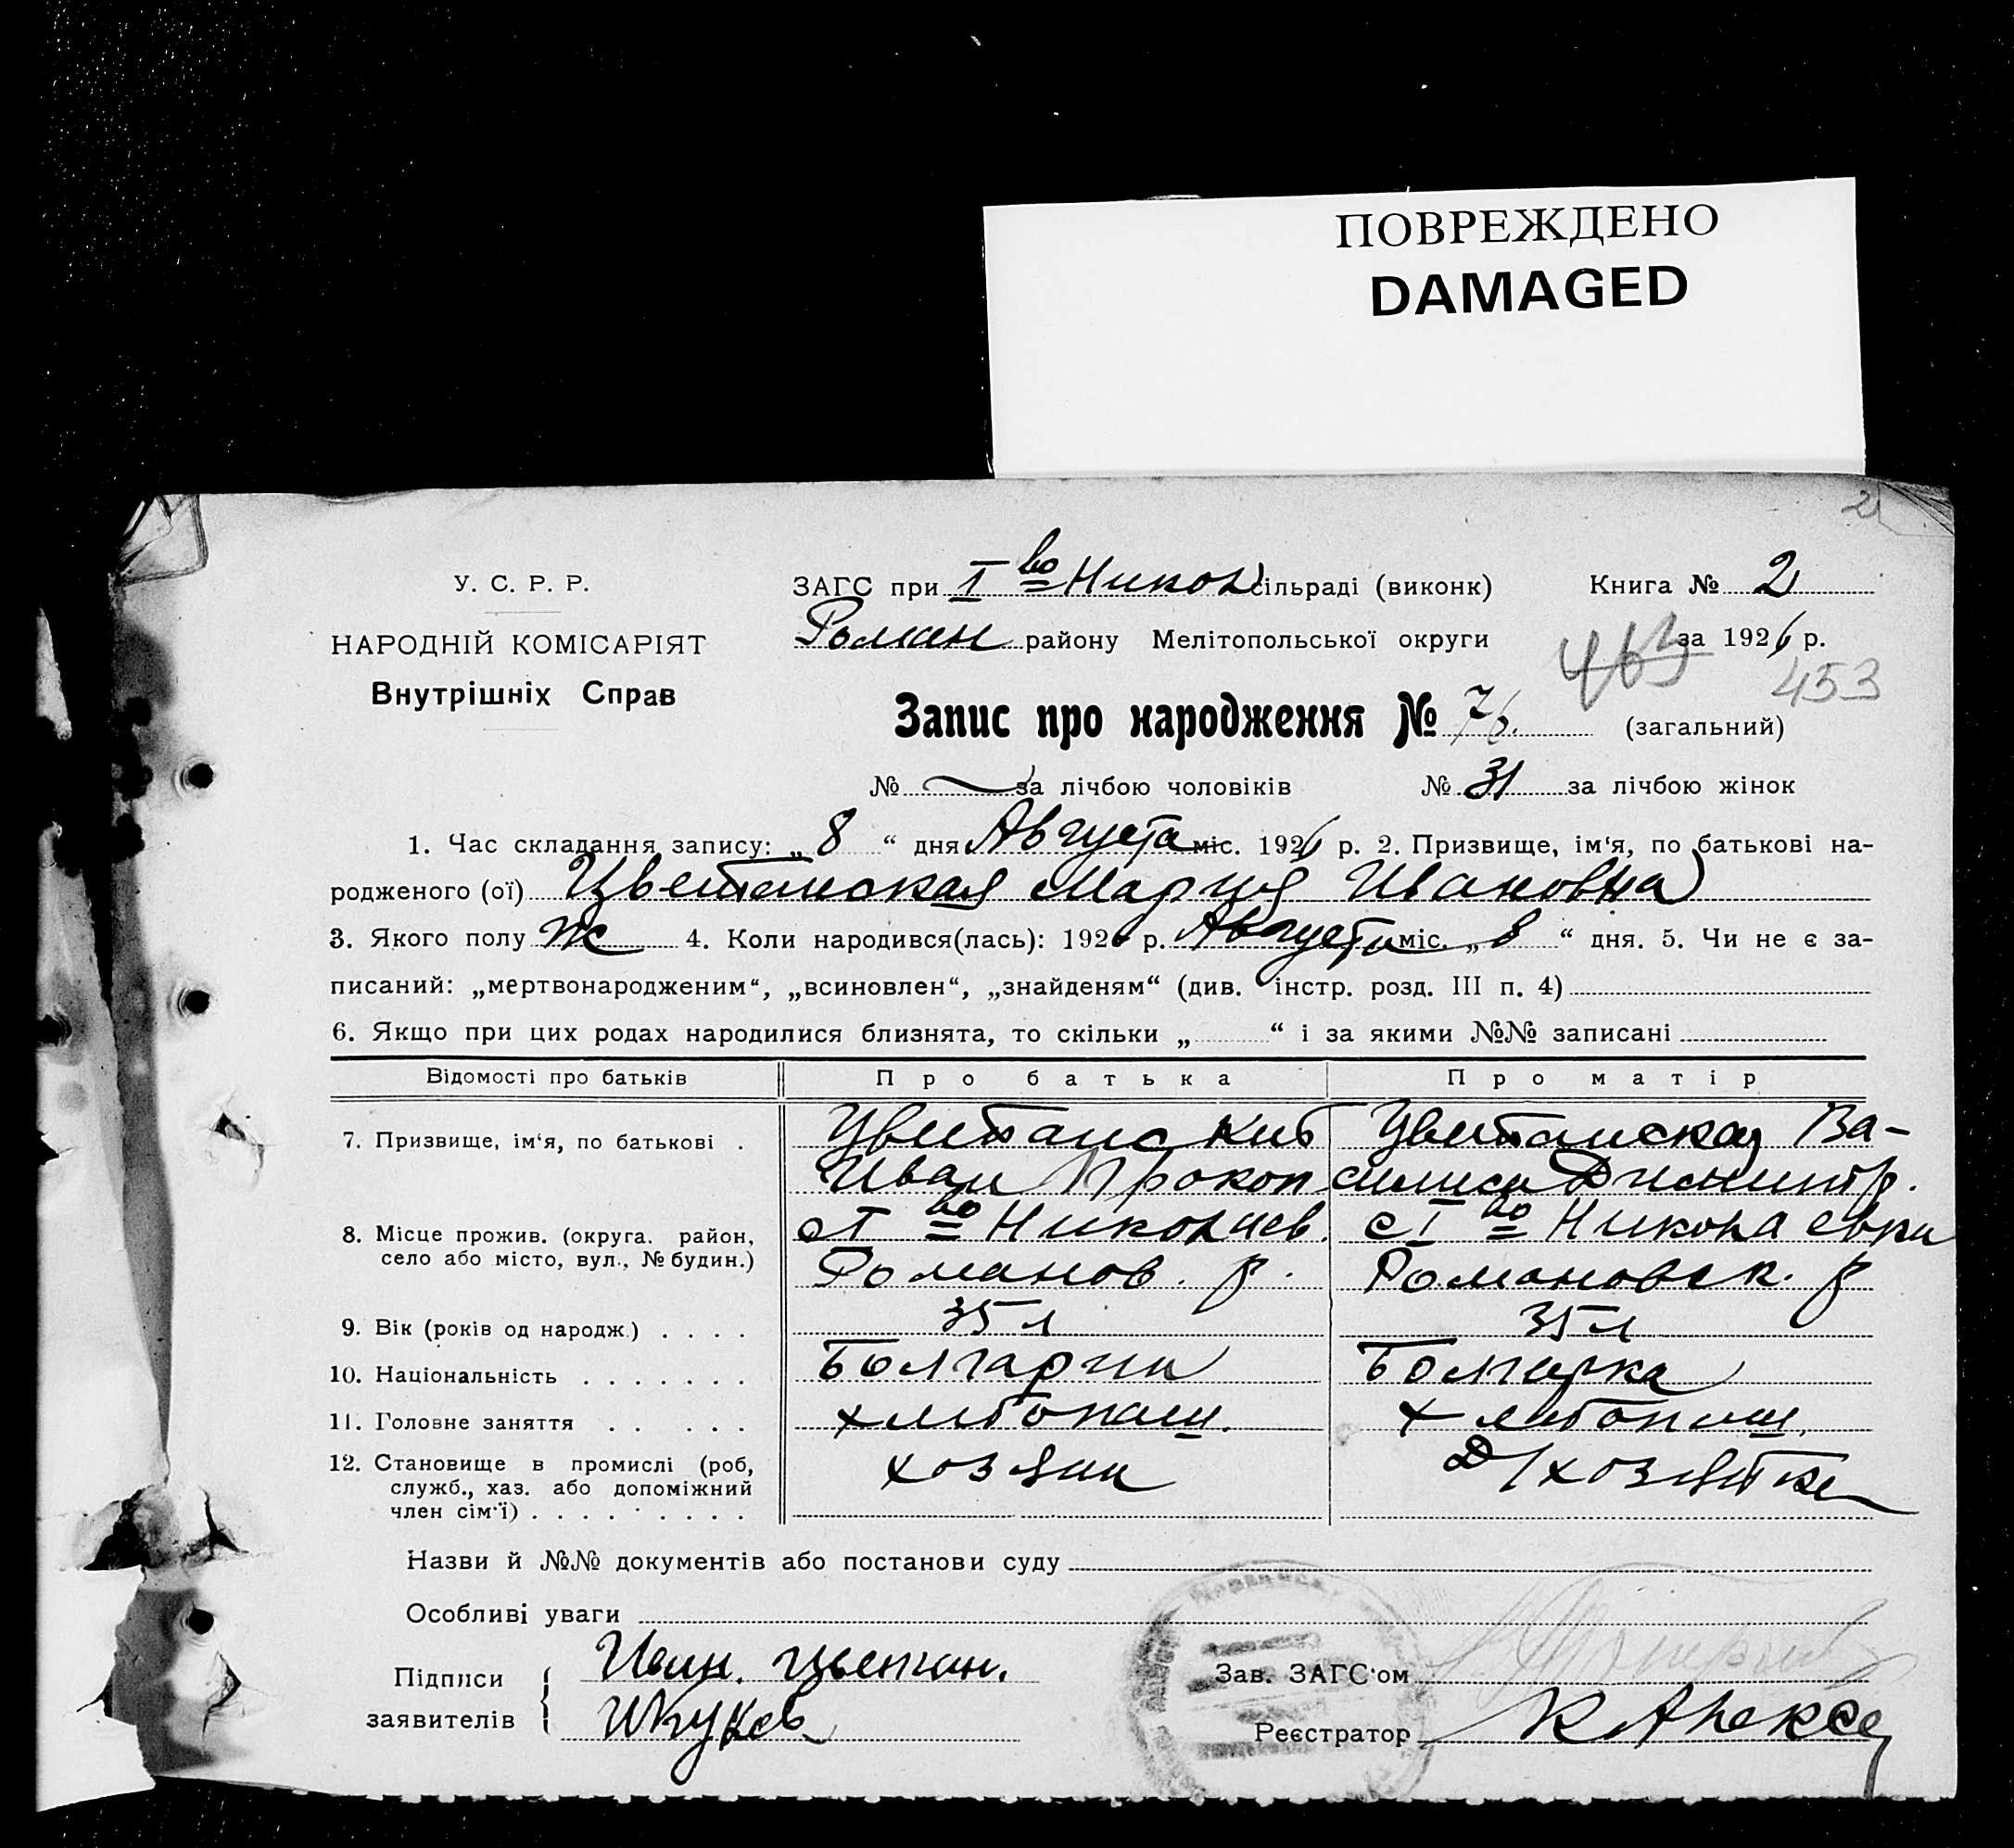 ПОВРЕЖДЕНО
DAMAGED
2
У. С. Р. Р.
ЗАГС при I во Никол сільраді (виконк) Книга № 2
НАРОДНІЙ КОМІСАРІЯТ
Роман району Мелітопольської округи за 1926 р.
463
453
Внутрішніх Справ
Запис про народження № 76. (загальний)
№ за лічбою чоловіків № 31 за лічбою жінок
1. Час складання запису: „ 8 “ дня Августа міс. 1926 р. 2. Призвище, ім‘я, по батькові на-
родженого (ої) Цветанская Мария Ивановна
3. Якого полу ж 4. Коли народився(лась): 1926 р. Августа міс. „ 8 “ дня. 5. Чи не є за-
писаний: „мертвонародженим“, „всиновлен“, „знайденям“ (див. інстр. розд. III п. 4)
6. Якщо при цих родах народилися близнята, то скільки „ “ і за якими №№ записані
Відомості про батьків Про батька Про матір
7. Призвище, ім‘я, по батькові . Цветанский Цветанская Ва-
Иван Прокоп силиса Димитр.
8. Місце прожив. (округа. район, с I во Николаев. с I во Николаевки
село або місто, вул., № будин.) Романов. р. Романовск. р
9. Вік (років од народж.) . . . . 35 л 35 л
10. Національність . . . . . . . Болгарин Болгарка
11. Головне заняття . . . . . хлебопаш. хлебопаш.
12. Становище в промислі (роб, хозяин Д/хозяйка
служб., хаз. або допоміжний
член сім‘ї) . . . . . . . . .
Назви й №№ документів або постанови суду
Особливі уваги
Підписи Иван. Цветан.
Зав. ЗАГС‘ом
заявителів
Реєстратор К Алексе